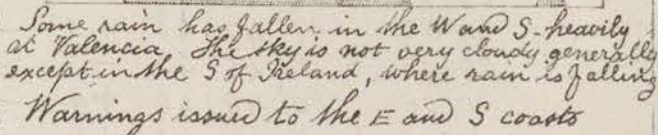 Some rain has fallen in the W and S - heavily
at Valencia. The sky is not very cloudy generally
except in the S of Ireland, where rain is falling
Warnings issued to the E and S coasts